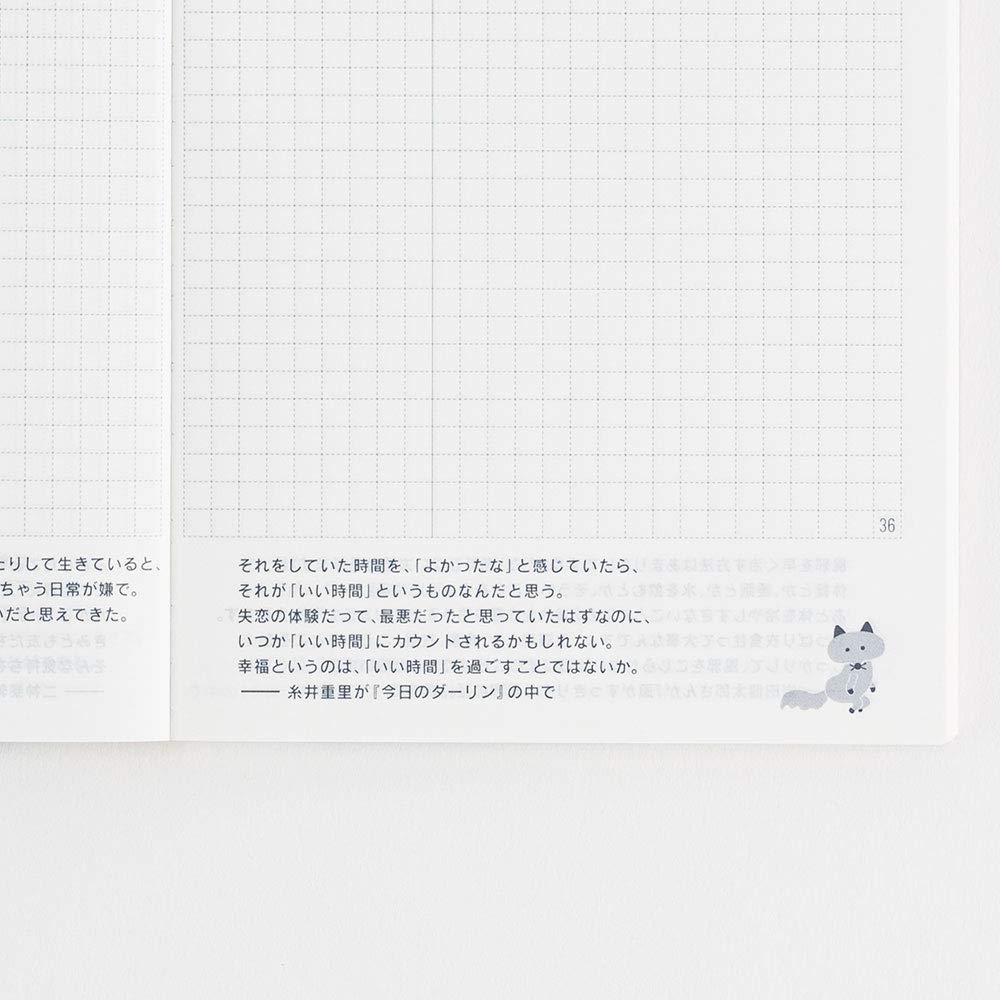 36
たりして生きていると、
ちゃう日常が嫌で。
いだと思えてきた。
それをしていた時間を、「よかったな」と感じていたら、
それが「いい時間」というものなんだと思う。
失恋の体験だって、最悪だったと思っていたはずなのに、
いつか「いい時間」にカウントされるかもしれない。
幸福というのは、「いい時間」を過ごすことではないか。
―― 糸井重里が『今日のダーリン』の中で